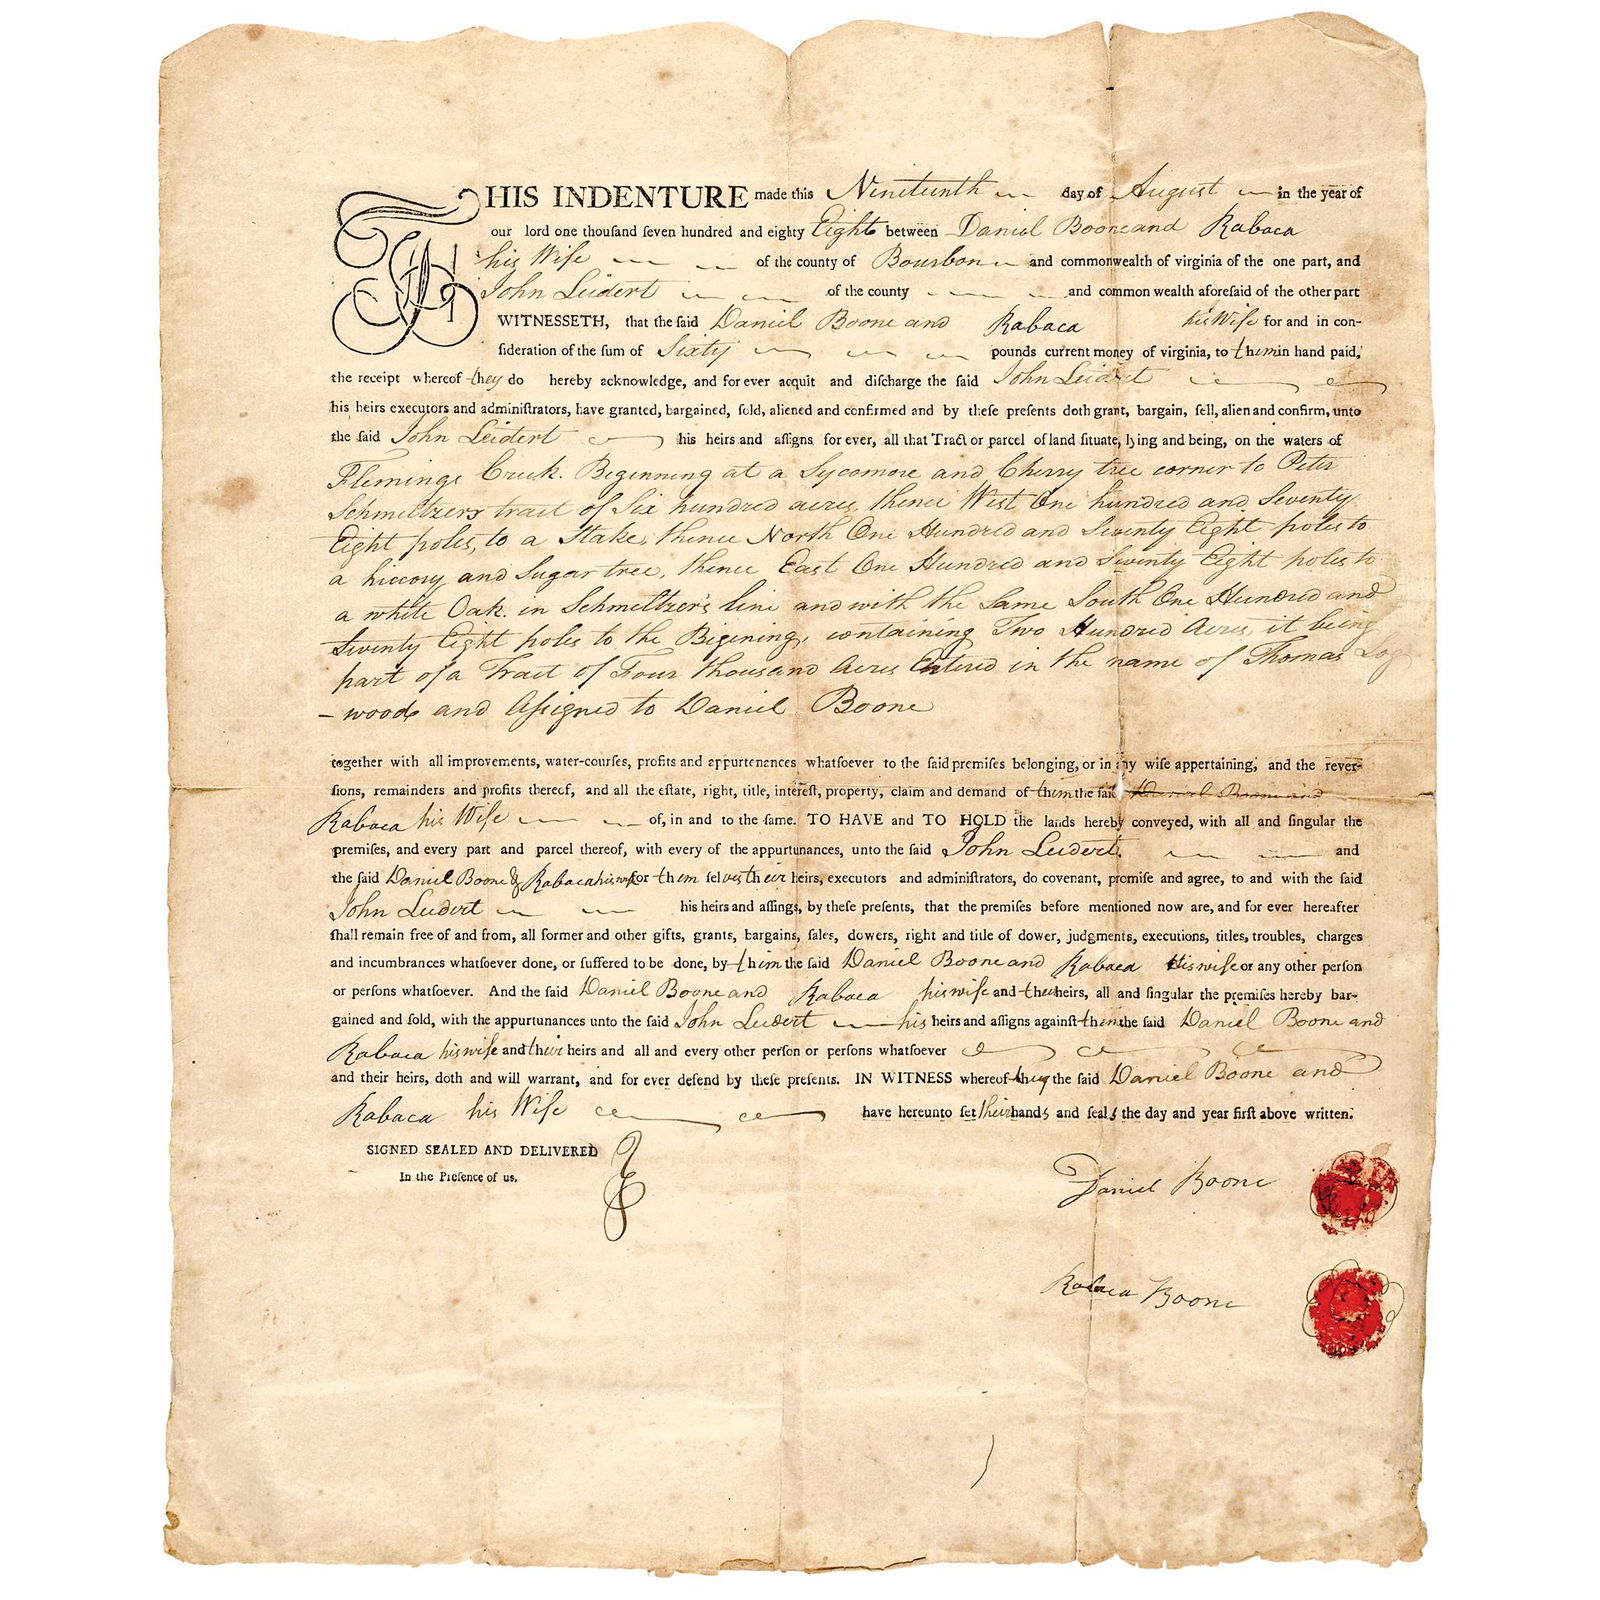 THIS INDENTURE made this Nineteenth day of August in the year of
our lord one thouſand ſeven hundred and eighty Eight between Daniel Boone and Rabaca
his Wife of the county of Bourbon and commonwealth of virginia of the one part, and
John Leidert of the county and common wealth aforeſaid of the other part
WITNESSETH, that the ſaid Daniel Boone and Rabaca his Wife for and in con-
ſideration of the ſum of Sixty pounds current money of virginia, to them in hand paid,
the receipt whereof they do hereby acknowledge, and for ever acquit and diſcharge the ſaid John Leidert
his heirs executors and adminiſtrators, have granted, bargained, ſold, aliened and confirmed and by theſe preſents doth grant, bargain, ſell, alien and confirm, unto
the ſaid John Leidert his heirs and aſſigns for ever, all that Tract or parcel of land ſituate, lying and being, on the waters of
Flemings Creek. Beginning at a Sycomore and Cherry tree corner to Peter
Schmeltzers tract of Six hundred acres, thence West One hundred and Seventy
Eight poles, to a Stake, thence North One Hundred and Seventy Eight poles to
a hiccory and Sugar tree, thence East One Hundred and Seventy Eight poles to
a white Oak. in Schmeltzer's line and with the Same South One Hundred and
Seventy Eight poles to the Bigining, containing Two Hundred Acres, it being
part of a Tract of Four thousand Acres Entered in the name of Thomas Log
-wood and Aſsigned to Daniel Boone
together with all improvements, water-courſes, profits and appurtenances whatſoever to the ſaid premiſes belonging, or in any wiſe appertaining, and the rever-
ſions, remainders and profits thereof, and all the eſtate, right, title, intereſt, property, claim and demand of them the ſaid Daniel Boone and
Rabaca his Wife of, in and to the ſame. TO HAVE and TO HOLD the lands hereby conveyed, with all and ſingular the
premiſes, and every part and parcel thereof, with every of the appurtunances, unto the ſaid John Leidert. and
the ſaid Daniel Boone & Rabaca his wife for them ſelves their heirs, executors and adminiſtrators, do covenant, promiſe and agree, to and with the ſaid
John Leidert his heirs and aſſings, by theſe preſents, that the premiſes before mentioned now are, and for ever hereafter
ſhall remain free of and from, all former and other gifts, grants, bargains, ſales, dowers, right and title of dower, judgments, executions, titles, troubles, charges
and incumbrances whatſoever done, or ſuffered to be done, by them the ſaid Daniel Boone and Rabaca his wife or any other perſon
or perſons whatſoever. And the ſaid Daniel Boone and Rabaca his wife and their heirs, all and ſingular the premiſes hereby bar-
gained and ſold, with the appurtunances unto the ſaid John Leidert his heirs and aſſigns againſt them the ſaid Daniel Boone and
Rabaca his wife and their heirs and all and every other perſon or perſons whatſoever
and their heirs, doth and will warrant, and for ever defend by theſe preſents. IN WITNESS whereof they the ſaid Daniel Boone and
Rabaca his Wife have hereunto ſet their hands and ſeals the day and year firſt above written.
SIGNED SEALED AND DELIVERED
In the Preſence of us,
Daniel Boone
Rabaca Boone